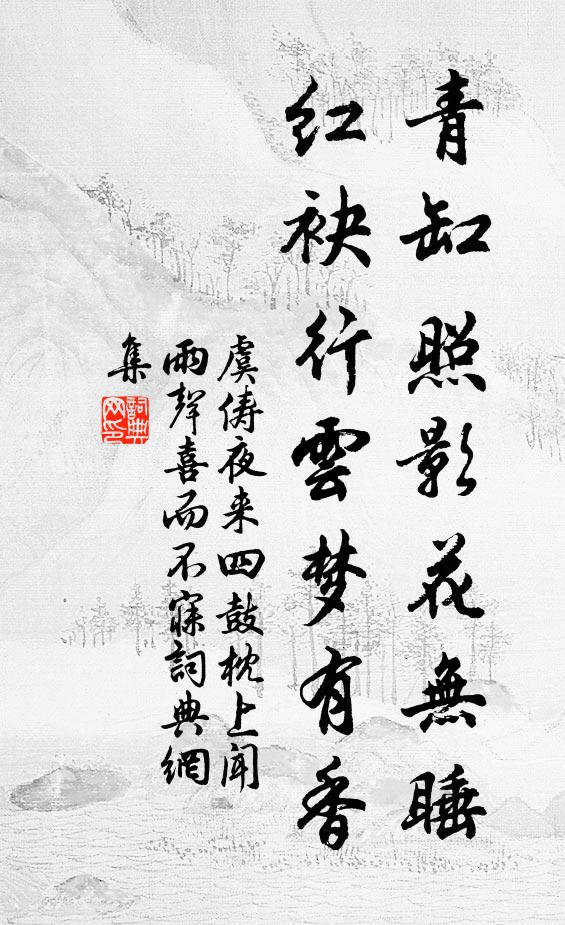 青缸照影花無睡
红袂行雲梦有香
虞俦夜来四鼓枕上闻
雨聲喜而不寐詞典網
集
詞典网印